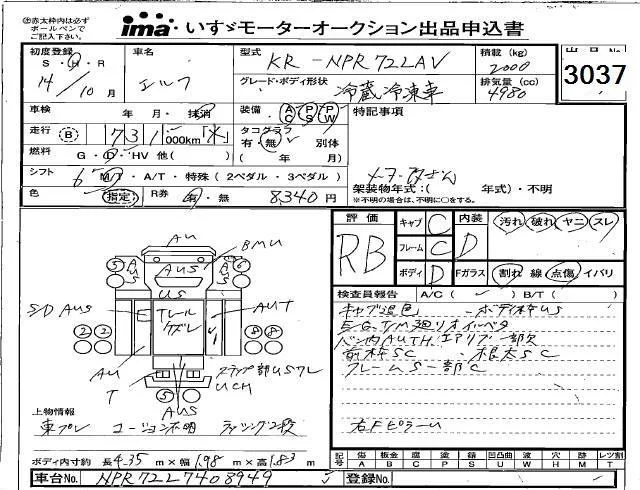 ㊟赤太枠内は必ず
ボールペンで
ご記入下さい。
ima いすゞモーターオークション出品申込書
初度登録 車名 型式 KR-NPR72LAV 積載 (kg) 出品No.
S・H・R 14/10月 エルフ 2000 3037
グレード・ボディ形状 冷蔵冷凍車 排気量 (cc) 4980
車検 年・月・抹消 装備 AC PS PW 特記事項
走行 B 731,000km タコグラフ 有・無 別体
燃料 G・D・HV 他( ) ( 年 月)
シフト 6 MT・A/T・特殊 (2ペダル・3ペダル) 架装物年式:( 年式)・不明
色 指定 R券 有・無 8340円 ※不明の場合は、不明に○をする。
評価 RB キャブ C 内装 D 汚れ 破れ ヤニ スレ
フレーム C
ボディ D Fガラス 割れ 線 点傷 イバリ
検査員報告 A/C( ) B/T( )
キャブ退色 ・ボディ体US
E/G.T/M廻りオイルベタ
前枠SC ・根太SC
フレームS一部C
右FピラーU
AU
BMU
AUS
US
S/D AUS
AUT
E
AU
T
UCH
AUS
5
6
2 2
8 8
5
上物情報
東プレ コーション不明 ラッシング2段
ボディ内寸約 長4.35m×幅1.98m×高1.83m
記号 傷A 板B 腐C 塗P 錆S 凹U 波W 穴H 跡M レツ割T
車台No. NPR72L7408949 登録No.